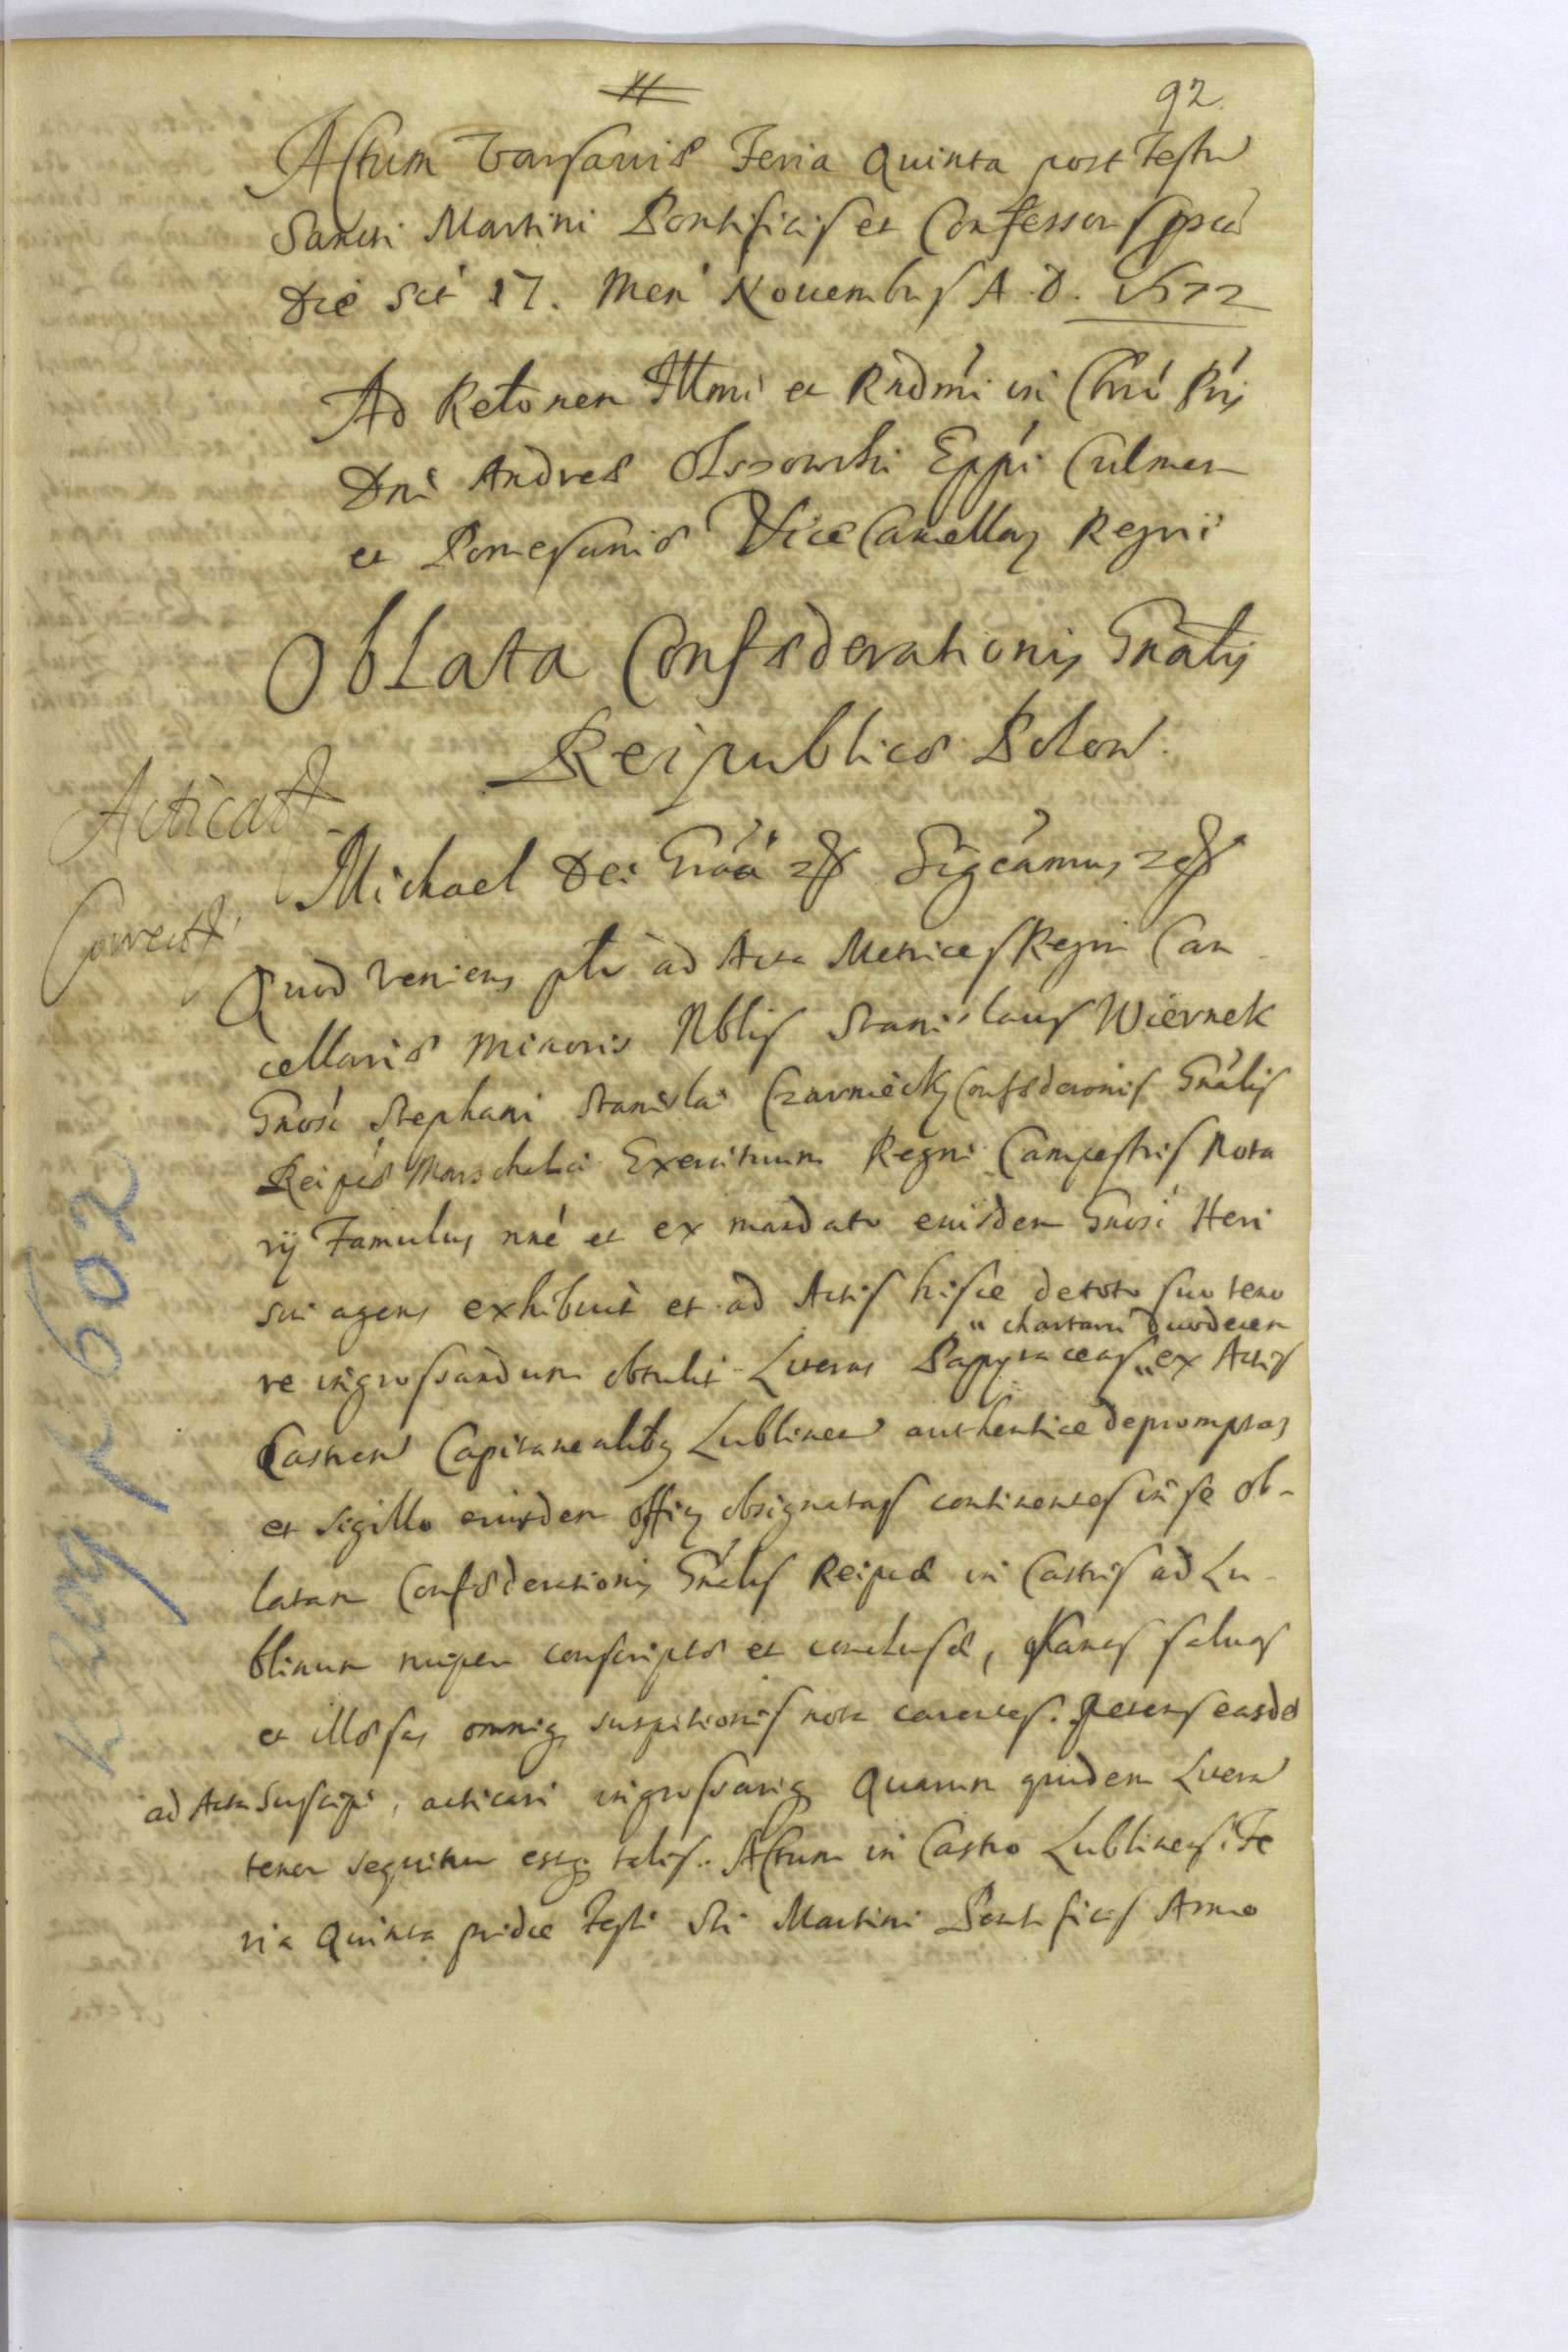 92
Actum Varsaviæ Feria Quinta post Festu
Sancti Martini Pontificis et Confessoris ipsa
Die sct 17. Men Novembris A. D. 1672
Ad Retõnen Illmi et Rndmi in Chró Pris
Dni Andreæ Olszowski Eppi Culmen
et Pomesaniæ ViceCancellarij Regni
Oblata Confæderationis Gnãlis
Reipublicæ Polon.
Acticat
Michael Dei Gráá Sigcámus
Correct
Quod veniens pltr ad Acta Metrices Regni Can
cellariæ Minoris Nblis Stanislaus Wiernek
Gnosi Stephani Stanislai Czarniecky Confæderonis Gnális
Reipcæ Marschalci Exercituum Regni Campestris Nota
rij Famulus nné et ex mandato eiusdem Gnosi Heri
sui agens exhibuit et ad Actis hisce de toto suo teno
" chartaru duodecem
re ingrossandum obtulit Lreras Papyraceas " ex Actis
Castren Capitanealibq Lublinen authentice depromptas
et sigillo eiusdem officij obsignatas continentes in se ob-
latam Confæderationis Gnális Reipcæ in Castris ad Lu-
blinum nuper conscriptæ et conclusæ, sanas salvas
et illæsas omniq suspitionis nota carentes. Petens easde
ad Acta Suscipi, acticari ingrossariq Quarum quidem Lrera
tenor sequitur estq talis. Actum in Castro Lublinensi Fe
ria Quinta pridie Festi Sti Martini Pontificis Anno
K 209 K 602